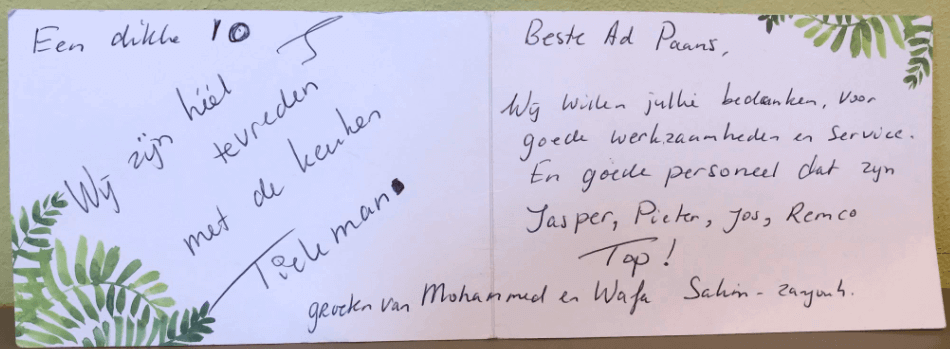 Een dikke 10
Wij zijn héél
tevreden
met de keuken
Tielemans
Beste Ad Paans,
Wij willen jullie bedanken, voor
goede werkzaamheden en service.
En goede personeel dat zijn
Jasper, Pieter, Jos, Remco
Top!
groeten van Mohammed en Wafa Sahin -